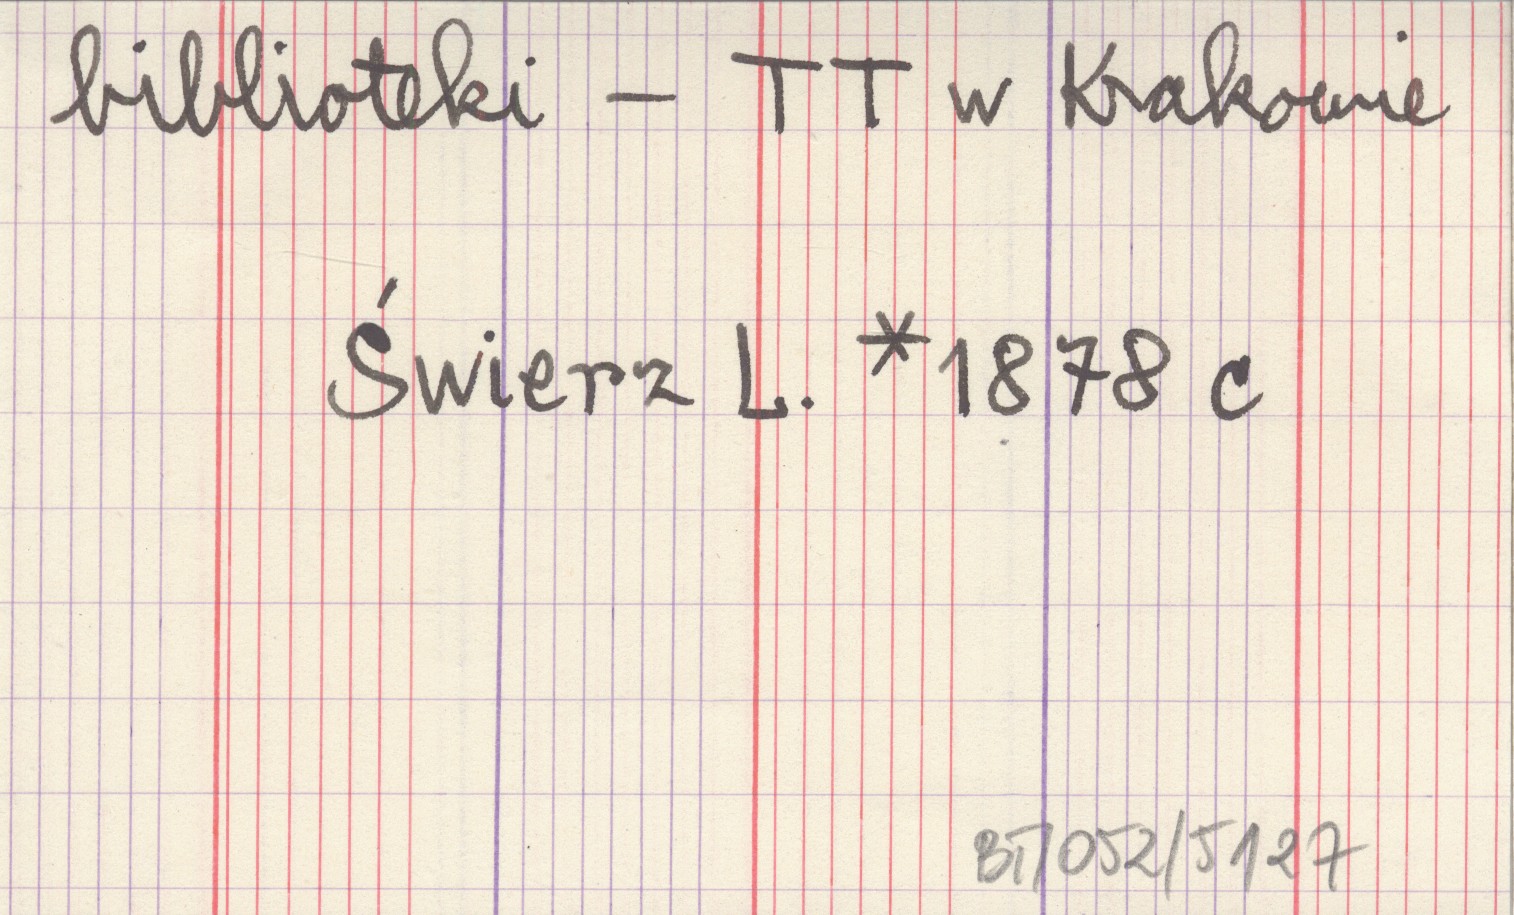 biblioteki – TT w Krakowie
Świerz L. *1878 c
BT/052/5127